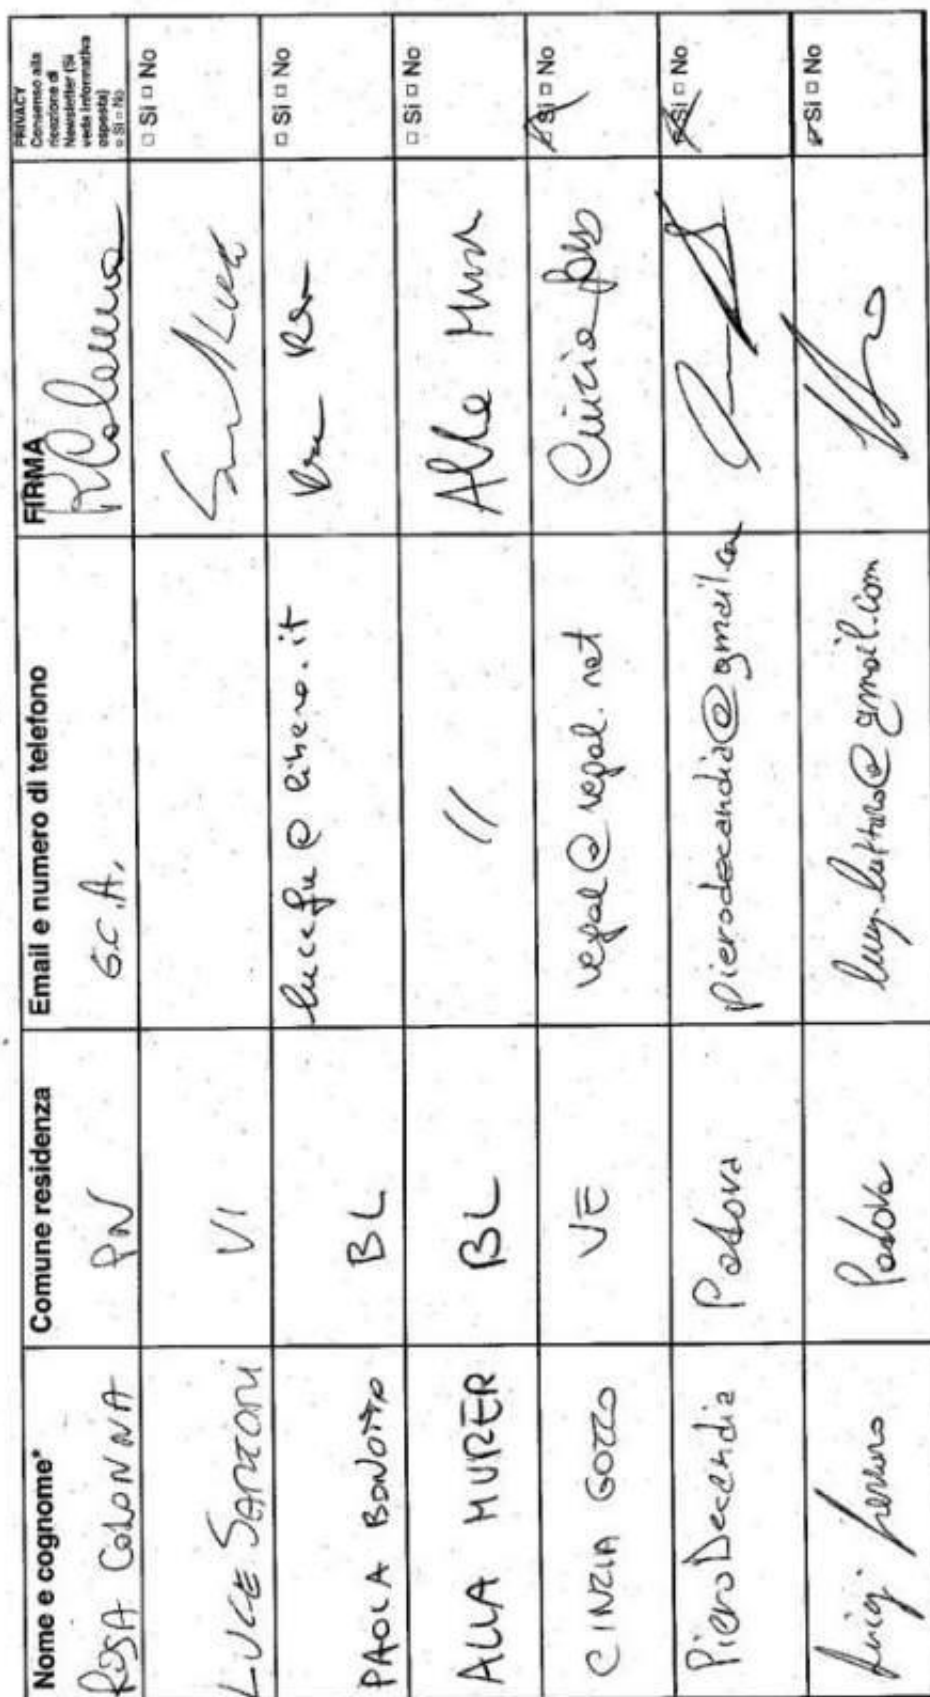 Nome e cognome* Comune residenza Email e numero di telefono FIRMA PRIVACY
Consenso alla
ricezione di
Newsletter (Si
veda informativa
esposta)
□ Si □ No
ROSA COLONNA PN G.C.A. RColonna
LUCE SARTORI VI □ Si □ No
PAOLA BONOTTO BL lucefu@libero.it □ Si □ No
ALLA MURER BL // Alla Murer □ Si □ No
CINZIA GOZZO VE vegal@vegal.net Cinzia Gozzo Si □ No
Piero Decandia Padova pierodecandia@gmail.com Si □ No
Luigi Padova @gmail.com Si □ No